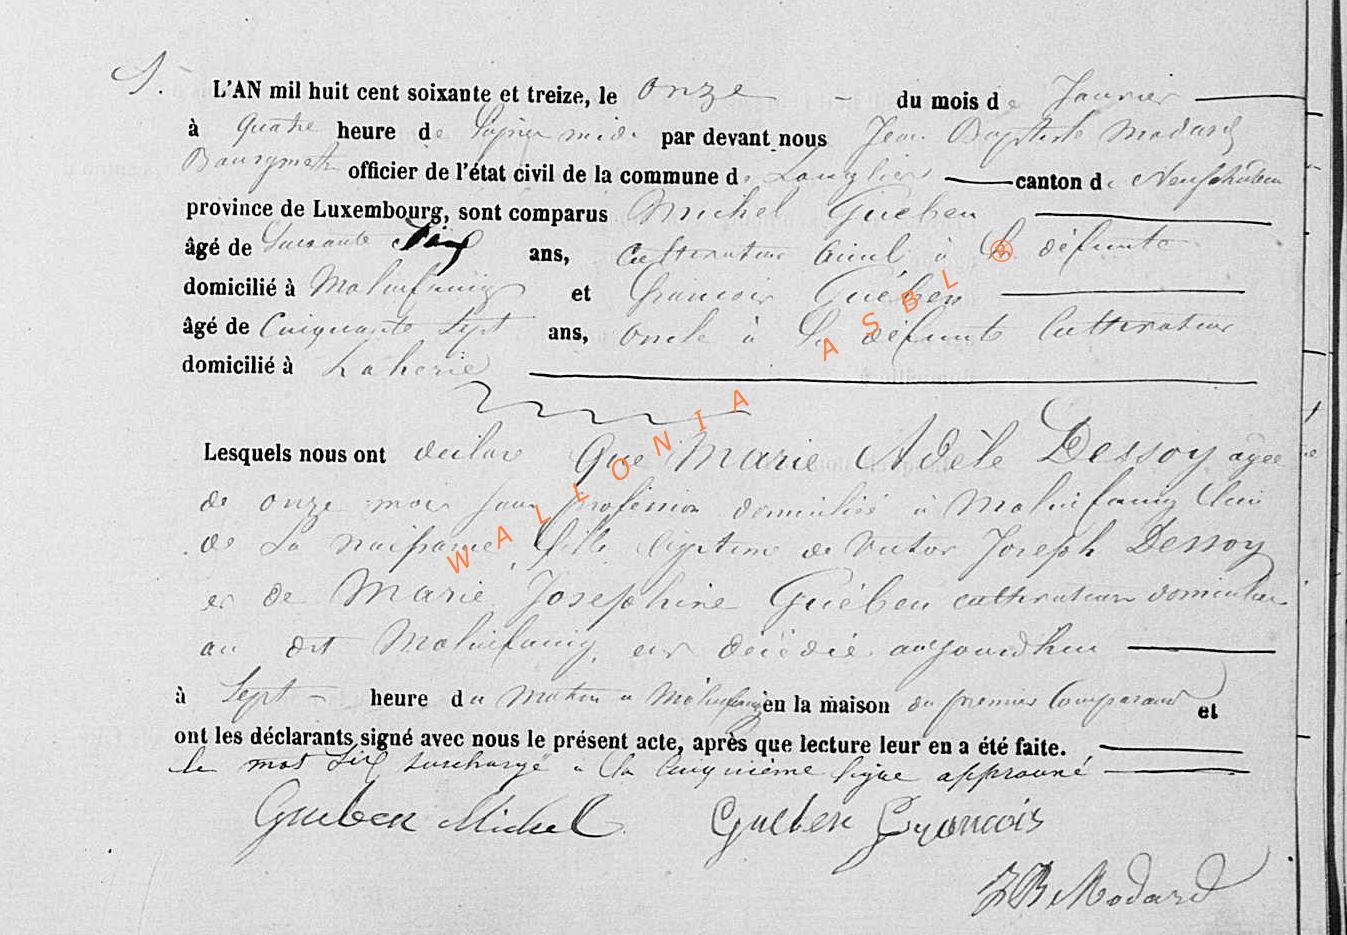 1.
L'AN mil huit cent soixante et treize, le onze du mois de Janvier
à quatre heure de l'après midi par devant nous Jean Baptiste Modard
Bourgmestre officier de l'état civil de la commune de Longlier canton de Neufchateau
province de Luxembourg, sont comparus Michel Gueben
âgé de Soixante Six ans, cultivateur aieul à la défunte
domicilié à Molinfaing et francois Guében
âgé de Cinquante Sept ans, oncle à la défunte Cultivateur
domicilié à Laherie
Lesquels nous ont déclaré Que Marie Adèle Dessoy agée
de onze mois sans profession domiciliée à Molinfaing lieu
de sa naissance, fille légitime de Victor Joseph Dessoy
et de Marie Josephine Guében cultivateurs domiciliés
au dit Molinfaing, est décédée aujourd'hui
à Sept heure du matin à Molinfaing en la maison du premier Comparant et
ont les déclarants signé avec nous le présent acte, après que lecture leur en a été faite.
le mot Six surchargé à la cinquième ligne approuvé
Gueben Michel Gueben Francois
JB Modard
WALLONIA ASBL ®